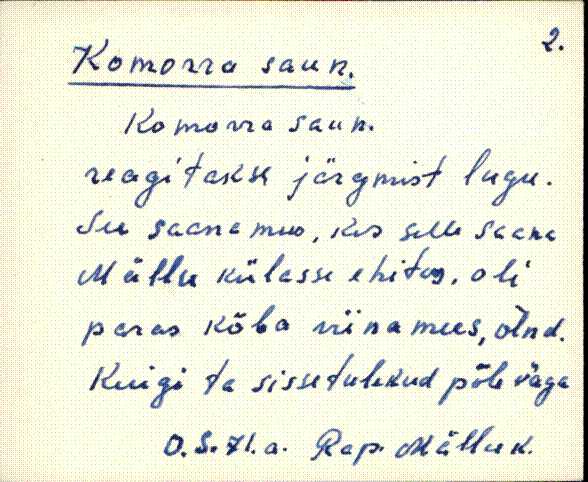 2.
Komorra saun.
Komorra saun.
reagitakse järgmist lugu.
See saanamees, kes selle saana
Mällu külasse ehitas, oli
paras kõba viinamees, õlnd.
Kuigi ta sissetulekud põle väga
O.S. 71.a. Rap. Mälluk.